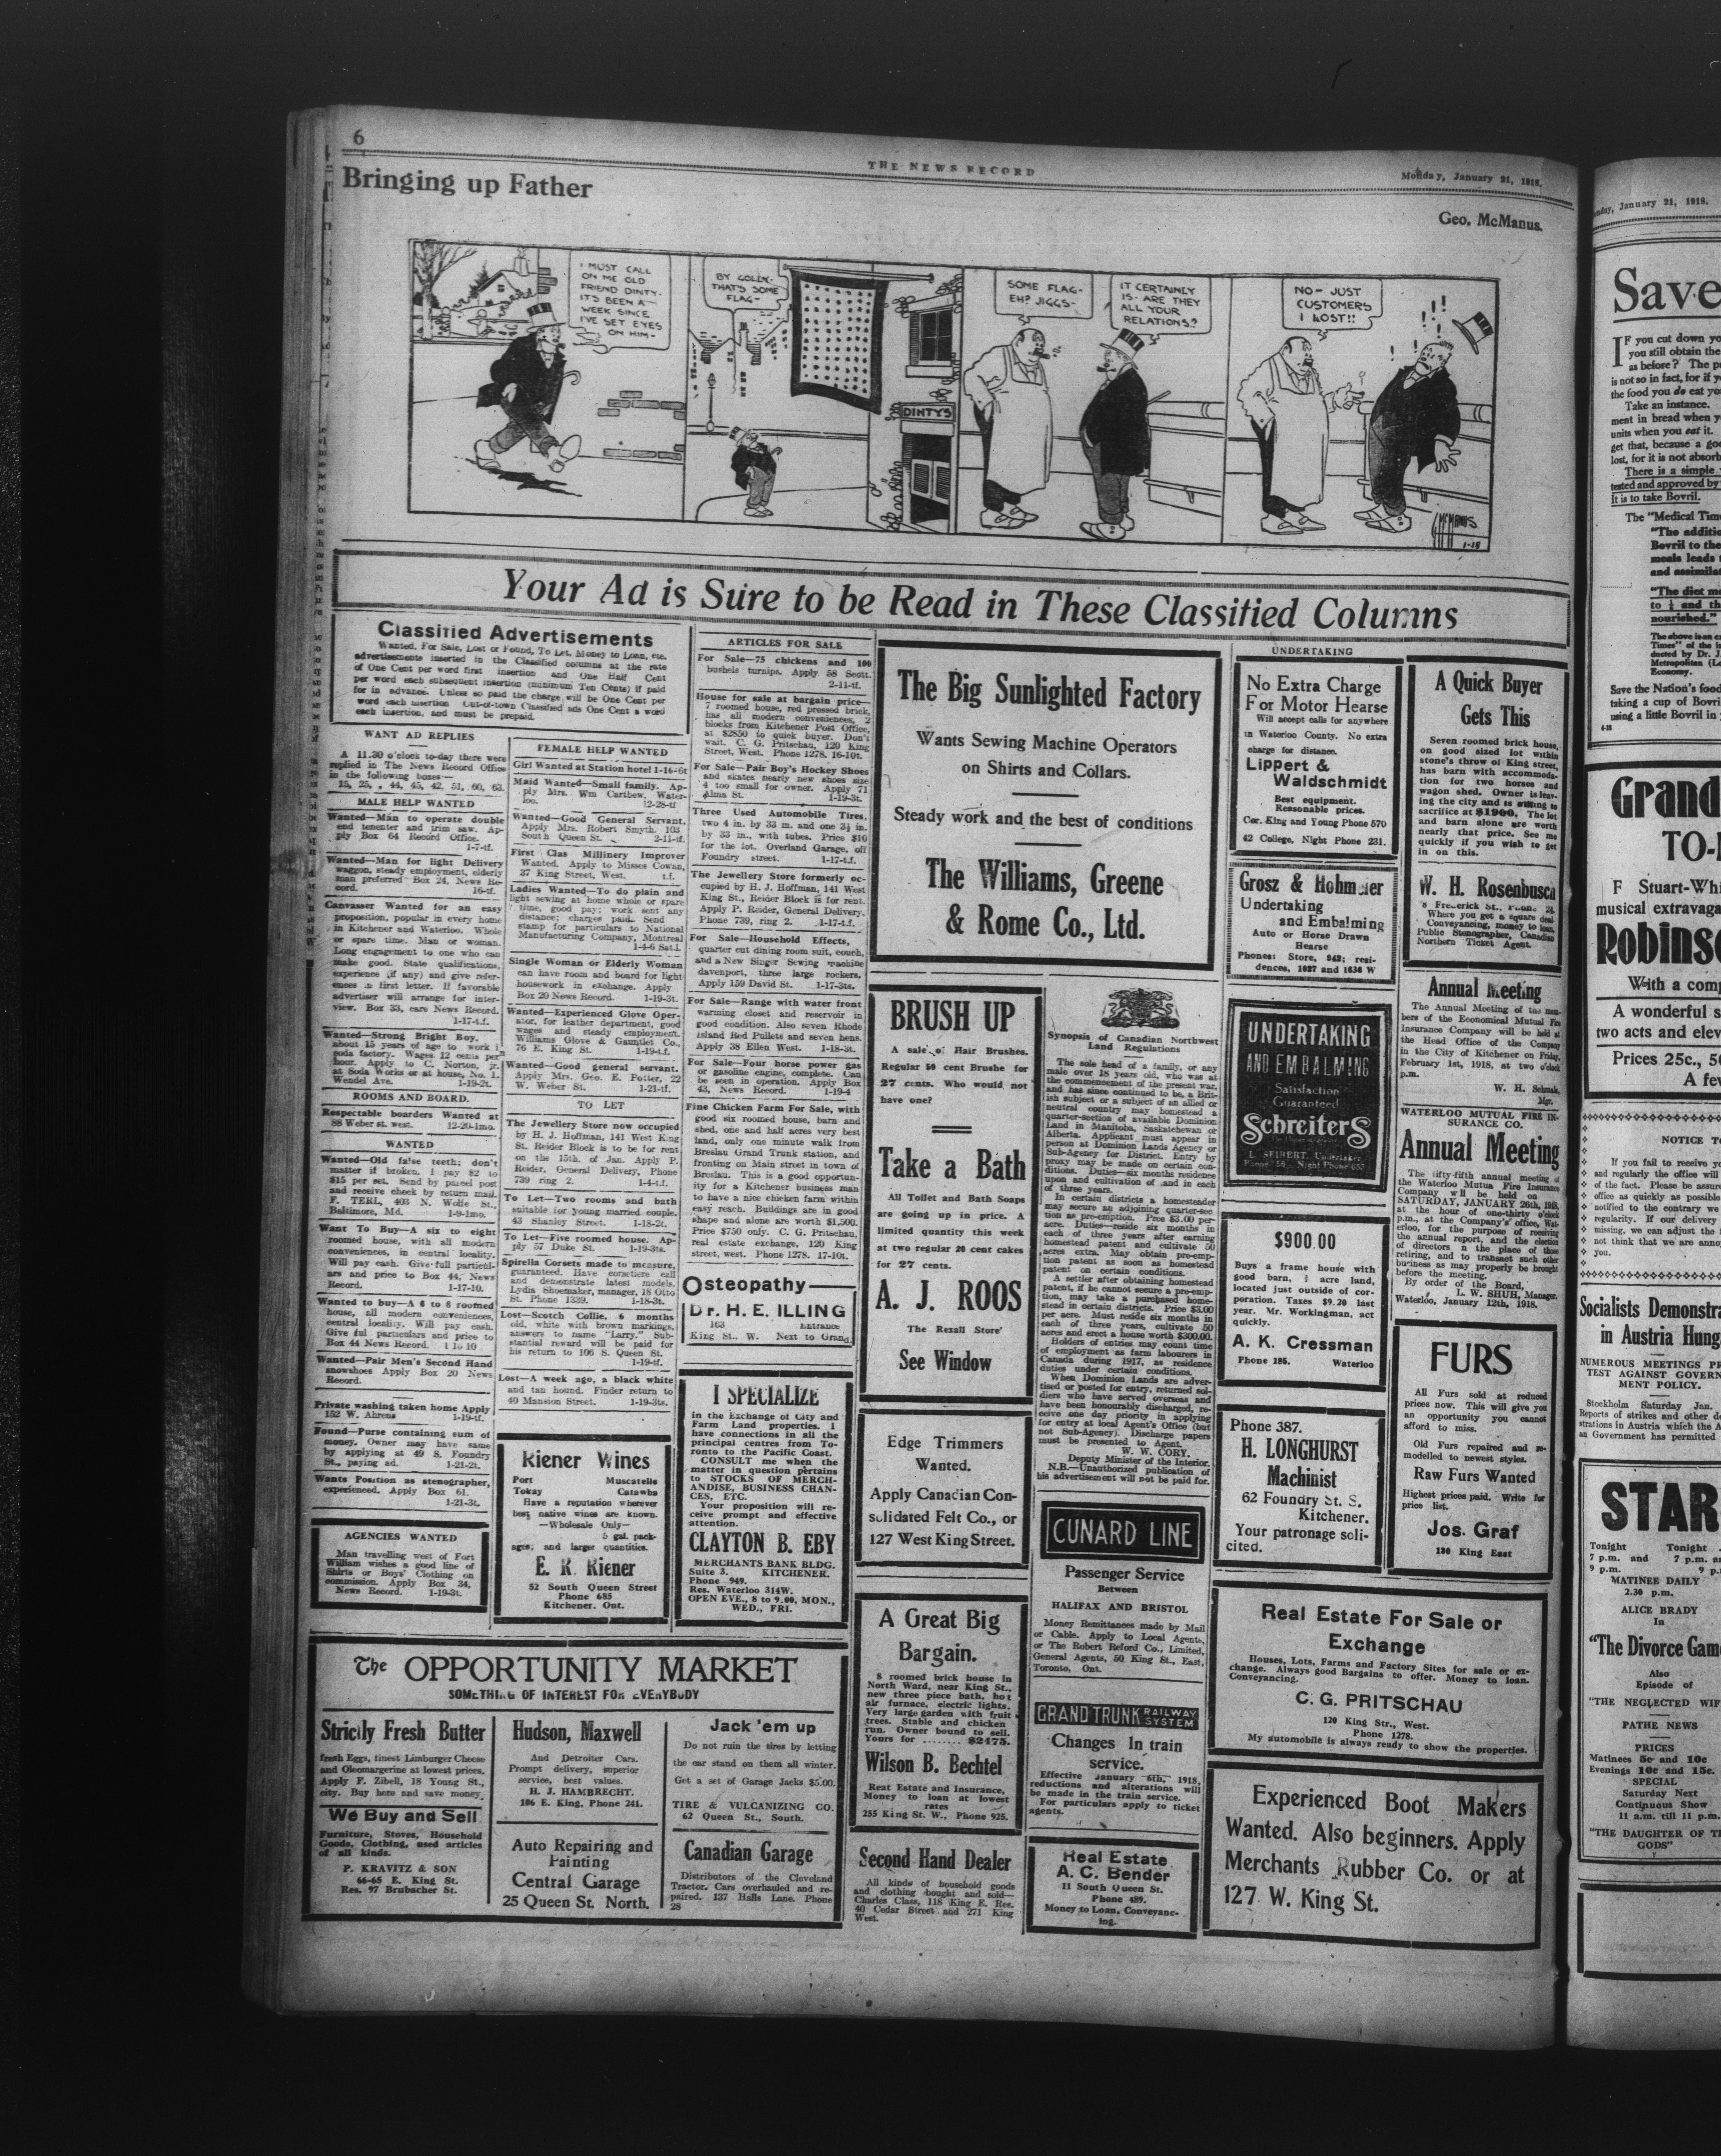 6
THE NEWS RECORD
Monday, January 21, 1918.
Bringing up Father
Geo. McManus.
I MUST CALL
ON ME OLD
FRIEND DINTY-
IT'S BEEN A
WEEK SINCE
I'VE SET EYES
ON HIM-
BY GOLLY-
THAT'S SOME
FLAG-
DINTY'S
SOME FLAG-
EH? JIGGS-
IT CERTAINLY
IS- ARE THEY
ALL YOUR
RELATIONS?
NO- JUST
CUSTOMERS
I LOST!!
1-18
Your Ad is Sure to be Read in These Classified Columns
Classified Advertisements
Wanted, For Sale, Lost or Found, To Let, Money to Loan, etc.
advertisements inserted in the Classified columns at the rate
of One Cent per word first insertion and One Half Cent
per word each subsequent insertion (minimum Ten Cents) if paid
for in advance. Unless so paid the charge will be One Cent per
word each insertion Out-of-town Classified ads One Cent a word
each insertion, and must be prepaid.
WANT AD REPLIES
A 11.30 o'clock to-day there were
replied in The News Record Office
in the following boxes:—
15, 25, , 44, 45, 42, 51, 60, 63.
MALE HELP WANTED
Wanted—Man to operate double
end tenenter and trim saw. Ap-
ply Box 64 Record Office.
1-7-tf.
Wanted—Man for light Delivery
waggon, steady employment, elderly
man preferred Box 24, News Re-
cord. 16-tf.
Canvasser Wanted for an easy
proposition, popular in every home
in Kitchener and Waterloo. Whole
or spare time. Man or woman.
Long engagement to one who can
make good. State qualifications,
experience (if any) and give refer-
ences in first letter. If favorable
advertiser will arrange for inter-
view. Box 33, care News Record.
1-17-t.f.
Wanted—Strong Bright Boy,
about 15 years of age to work i
soda factory. Wages 12 cents per
hour. Apply to C. Norton, jr.
at Soda Works or at house, No. 1.
Wendel Ave. 1-19-2t.
ROOMS AND BOARD.
Respectable boarders Wanted at
88 Weber st. west. 12-20-1mo.
WANTED
Wanted—Old false teeth; don't
matter if broken. I pay $2 to
$15 per set. Send by parcel post
and receive check by return mail.
F. TERL, 403 N. Wolfe St.,
Baltimore, Md. 1-9-1mo.
Want To Buy—A six to eight
roomed house, with all modern
conveniences, in central locality.
Will pay cash. Give full particul-
ars and price to Box 44, News
Record. 1-17-10.
Wanted to buy—A 6 to 8 roomed
house, all modern conveniences,
central locality. Will pay cash.
Give ful particulars and price to
Box 44 News Record. 1 1o 10
Wanted—Pair Men's Second Hand
snowshoes Apply Box 20 News
Record.
Private washing taken home Apply
152 W. Ahrens 1-19-tf.
Found—Purse containing sum of
money. Owner may have same
by applying at 49 S. Foundry
St., paying ad. 1-21-2t.
Wants Position as stenographer,
experienced. Apply Box 61.
1-21-3t.
AGENCIES WANTED
Man travelling west of Fort
William wishes a good line of
Shirts or Boys' Clothing on
commission. Apply Box 34,
News Record. 1-19-3t.
FEMALE HELP WANTED
Girl Wanted at Station hotel 1-16-6t
Maid Wanted—Small family. Ap-
ply Mrs. Wm Carthew, Water-
loo. 12-28-tf
Wanted—Good General Servant.
Apply Mrs. Robert Smyth. 103
South Queen St. 2-11-tf.
First Clas Millinery Improver
Wanted. Apply to Misses Cowan,
37 King Street, West. t.f.
Ladies Wanted—To do plain and
light sewing at home whole or spare
time, good pay; work sent any
distance; charges paid. Send
stamp for particulars to National
Manufacturing Company, Montreal
1-4-6 Sat.l.
Single Woman or Elderly Woman
can have room and board for light
housework in exchange. Apply
Box 20 News Record. 1-19-3t.
Wanted—Experienced Glove Oper-
ator, for leather department, good
wages and steady employment.
Williams Glove & Gauntlet Co.,
76 E. King St. 1-19-t.f.
Wanted—Good general servant.
Apply Mrs. Geo. E. Potter, 22
W. Weber St. 1-21-tf.
TO LET
The Jewellery Store now occupied
by H. J. Hoffman, 141 West King
St. Reider Block is to be for rent
on the 15th. of Jan. Apply P.
Reider, General Delivery, Phone
739 ring 2. 1-4-t.f.
To Let—Two rooms and bath
suitable for young married couple.
43 Shanley Street. 1-18-2t.
To Let—Five roomed house. Ap-
ply 57 Duke St. 1-19-3ts.
Spirella Corsets made to measure,
guaranteed. Have corsetiere call
and demonstrate latest models.
Lydia Shoemaker, manager, 18 Otto
St. Phone 1339. 1-18-3t.
Lost—Scotch Collie, 6 months
old, white with brown markings,
answers to name "Larry." Sub-
stantial reward will be paid for
his return to 106 S. Queen St.
1-19-tf.
Lost—A week ago, a black white
and tan hound. Finder return to
40 Mansion Street. 1-19-3ts.
Kiener Wines
Port Muscatelle
Tokay Catawba
Have a reputation wherever
best native wines are known.
—Wholesale Only—
5 gal. pack-
ages; and larger quantities.
E. R. Kiener
52 South Queen Street
Phone 685
Kitchener, Ont.
ARTICLES FOR SALE
For Sale—75 chickens and 100
bushels turnips. Apply 58 Scott.
2-11-tf.
House for sale at bargain price—
7 roomed house, red pressed brick,
has all modern conveniences, 2
blocks from Kitchener Post Office,
at $2850 to quick buyer. Don't
wait. C. G. Pritschau, 120 King
Street, West. Phone 1278. 16-10t.
For Sale—Pair Boy's Hockey Shoes
and skates nearly new shoes size
4 too small for owner. Apply 71
Alma St. 1-19-3t.
Three Used Automobile Tires,
two 4 in. by 33 in. and one 3½ in.
by 33 in., with tubes. Price $10
for the lot. Overland Garage, off
Foundry street. 1-17-t.f.
The Jewellery Store formerly oc-
cupied by H. J. Hoffman, 141 West
King St., Reider Block is for rent.
Apply P. Reider, General Delivery.
Phone 739, ring 2. 1-17-t.f.
For Sale—Household Effects,
quarter cut dining room suit, couch,
and a New Singer Sewing machine
davenport, three large rockers.
Apply 159 David St. 1-17-3ts.
For Sale—Range with water front
warming closet and reservoir in
good condition. Also seven Rhode
Island Red Pullets and seven hens.
Apply 38 Ellen West. 1-18-3t.
For Sale—Four horse power gas
or gasoline engine, complete. Can
be seen in operation. Apply Box
43, News Record. 1-19-4
Fine Chicken Farm For Sale, with
good six roomed house, barn and
shed, one and half acres very best
land, only one minute walk from
Breslau Grand Trunk station, and
fronting on Main street in town of
Breslau. This is a good opportun-
ity for a Kitchener business man
to have a nice chicken farm within
easy reach. Buildings are in good
shape and alone are worth $1,500.
Price $750 only. C. G. Pritschau,
real estate exchange, 120 King
street, west. Phone 1278. 17-10t.
Osteopathy
Dr. H. E. ILLING
163 Entrance
King St., W. Next to Grand
I SPECIALIZE
in the Exchange of City and
Farm Land properties. I
have connections in all the
principal centres from To-
ronto to the Pacific Coast.
CONSULT me when the
matter in question pertains
to STOCKS OF MERCH-
ANDISE, BUSINESS CHAN-
CES, ETC.
Your proposition will re-
ceive prompt and effective
attention.
CLAYTON B. EBY
MERCHANTS BANK BLDG.
Suite 3. KITCHENER.
Phone 949.
Res. Waterloo 314W.
OPEN EVE., 8 to 9.00, MON.,
WED., FRI.
The OPPORTUNITY MARKET
SOMETHING OF INTEREST FOR EVERYBODY
Strictly Fresh Butter
fresh Eggs, finest Limburger Cheese
and Oleomargerine at lowest prices.
Apply F. Zibell, 18 Young St.,
city. Buy here and save money
We Buy and Sell
Furniture, Stoves, Household
Goods, Clothing, used articles
of all kinds.
P. KRAVITZ & SON
66-65 E. King St.
Res. 97 Brubacher St.
Hudson, Maxwell
And Detroiter Cars.
Prompt delivery, superior
service, best values.
H. J. HAMBRECHT.
106 E. King. Phone 241.
Auto Repairing and
Painting
Central Garage
25 Queen St. North.
Jack 'em up
Do not ruin the tires by letting
the car stand on them all winter.
Get a set of Garage Jacks $5.00.
TIRE & VULCANIZING CO.
62 Queen St., South.
Canadian Garage
Distributors of the Cleveland
Tractor. Cars overhauled and re-
paired. 137 Halls Lane. Phone
28
The Big Sunlighted Factory
Wants Sewing Machine Operators
on Shirts and Collars.
Steady work and the best of conditions
The Williams, Greene
& Rome Co., Ltd.
BRUSH UP
A sale o' Hair Brushes.
Regular 50 cent Brushe for
27 cents. Who would not
have one?
Take a Bath
All Toilet and Bath Soaps
are going up in price. A
limited quantity this week
at two regular 20 cent cakes
for 27 cents.
A. J. ROOS
The Rexall Store'
See Window
Edge Trimmers
Wanted.
Apply Canadian Con-
solidated Felt Co., or
127 West King Street.
A Great Big
Bargain.
8 roomed brick house in
North Ward, near King St.,
new three piece bath, hot
air furnace, electric lights.
Very large garden with fruit
trees. Stable and chicken
run. Owner bound to sell.
Yours for ........ $2475.
Wilson B. Bechtel
Real Estate and Insurance,
Money to loan at lowest
rates
255 King St. W., Phone 925.
Second Hand Dealer
All kinds of household goods
and clothing bought and sold—
Charles Class, 118 King E. Res.
40 Cedar Street and 271 King
West.
Synopsis of Canadian Northwest
Land Regulations
The sole head of a family, or any
male over 18 years old, who was at
the commencement of the present war,
and has since continued to be, a Brit-
ish subject or a subject of an allied or
neutral country may homestead a
quarter-section of available Dominion
Land in Manitoba, Saskatchewan or
Alberta. Applicant must appear in
person at Dominion Lands Agency or
Sub-Agency for District. Entry by
proxy may be made on certain con-
ditions. Duties—six months residence
upon and cultivation of and in each
of three years.
In certain districts a homesteader
may secure an adjoining quarter-sec
tion as pre-emption. Pree $3.00 per
acre. Duties—reside six months in
each of three years after earning
homestead patent and cultivate 50
acres extra. May obtain pre-emp-
tion patent as soon as homestead
patent on certain conditions.
A settler after obtaining homestead
patent, if he cannot secure a pre-emp-
tion, may take a purchased home-
stead in certain districts. Price $3.00
per acre. Must reside six months in
each of three years, cultivate 50
acres and erect a house worth $300.00.
Holders of entries may count time
of employment as farm labourers in
Canada during 1917, as residence
duties under certain conditions.
When Dominion Lands are adver-
tised or posted for entry, returned sol-
diers who have served overseas and
have been honourably discharged, re-
ceive one day priority in applying
for entry at local Agent's Office (but
not Sub-Agency). Discharge papers
must be presented to Agent.
W. W. CORY,
Deputy Minister of the Interior.
N.B.—Unauthorized publication of
his advertisement will not be paid for.
CUNARD LINE
Passenger Service
Between
HALIFAX AND BRISTOL
Money Remittances made by Mail
or Cable. Apply to Local Agents,
or The Robert Reford Co., Limited,
General Agents, 50 King St., East,
Toronto, Ont.
GRAND TRUNK RAILWAY SYSTEM
Changes In train
service.
Effective January 6th, 1918,
reductions and alterations will
be made in the train service.
For particulars apply to ticket
agents.
Real Estate
A. C. Bender
11 South Queen St.
Phone 489.
Money to Loan, Conveyanc-
ing.
UNDERTAKING
No Extra Charge
For Motor Hearse
Will accept calls for anywhere
in Waterloo County. No extra
charge for distance.
Lippert &
Waldschmidt
Best equipment.
Reasonable prices.
Cor. King and Young Phone 570
42 College, Night Phone 231.
Grosz & Hohmeier
Undertaking
and Embalming
Auto or Horse Drawn
Hearse
Phones: Store, 842; resi-
dences, 1027 and 1636 W
UNDERTAKING
AND EMBALMING
Satisfaction
Guaranteed
Schreiters
L. SEIBERT, Undertaker
$900.00
Buys a frame house with
good barn, acre land,
located just outside of cor-
poration. Taxes $9.20 last
year. Mr. Workingman, act
quickly.
A. K. Cressman
Phone 186. Waterloo
Phone 387.
H. LONGHURST
Machinist
62 Foundry St. S.
Kitchener.
Your patronage soli-
cited.
A Quick Buyer
Gets This
Seven roomed brick house,
on good sized lot within
stone's throw of King street,
has barn with accommoda-
tion for two horses and
wagon shed. Owner is leav-
ing the city and is willing to
sacrifice at $1900. The lot
and barn alone are worth
nearly that price. See me
quickly if you wish to get
in on this.
W. H. Rosenbusch
Frederick St., Phone
Where you get a square deal
Conveyancing, money to loan,
Public Stenographer, Canadian
Northern Ticket Agent.
Annual Meeting
The Annual Meeting of the mem-
bers of the Economical Mutual Fire
Insurance Company will be held at
the Head Office of the Company
in the City of Kitchener on Friday,
February 1st, 1918, at two o'clock
p.m.
W. H. Schmalz,
Mgr.
WATERLOO MUTUAL FIRE IN-
SURANCE CO.
Annual Meeting
The fifty-fifth annual meeting of
the Waterloo Mutua Fire Insurance
Company w'll be held on
SATURDAY, JANUARY 26th, 1918,
at the hour of one-thirty o'clock
p.m., at the Company's office, Wat-
erloo, for the purpose of receiving
the annual report, and the election
of directors n the place of those
retiring, and to transact such other
business as may properly be brought
before the meeting.
By order of the Board,
L. W. SHUH, Manager.
Waterloo, January 12th, 1918.
FURS
All Furs sold at reduced
prices now. This will give you
an opportunity you cannot
afford to miss.
Old Furs repaired and re-
modelled to newest styles.
Raw Furs Wanted
Highest prices paid. Write for
price list.
Jos. Graf
180 King East
Real Estate For Sale or
Exchange
Houses, Lots, Farms and Factory Sites for sale or ex-
change. Always good Bargains to offer. Money to loan.
Conveyancing.
C. G. PRITSCHAU
120 King Str., West.
Phone 1278.
My automobile is always ready to show the properties.
Experienced Boot Makers
Wanted. Also beginners. Apply
Merchants Rubber Co. or at
127 W. King St.
January 21, 1918.
Save
IF you cut down
you still obtain the
as before? The
is not so in fact, for if
the food you do eat
Take an instance.
ment in bread when
units when you eat it.
get that, because a
lost, for it is not
There is a simple
tested and approved by
It is to take Bovril.
The "Medical
"The
Bovril to the
meals leads
and
"The diet
to ¼ and
nourished."
The above is an
Times" of the
ducted by Dr. J.
Metropolitan
Economy.
Save the Nation's food
taking a cup of
using a little Bovril in
Grand
F Stuart-
musical
With a
A wonderful
two acts and
Prices 25c.,
A
NOTICE
If you fail to receive
and regularly the office will
of the fact. Please be
office as quickly as possible
notified to the contrary we
regularity. If our delivery
missing, we can adjust the
not think that we are
you.
Socialists
in Austria
NUMEROUS MEETINGS
TEST AGAINST
MENT POLICY.
Stockholm Saturday Jan.
Reports of strikes and other
strations in Austria which the
an Government has permitted
STAR
Tonight Tonight
7 p.m. and 7 p.m.
9 p.m. 9
MATINEE DAILY
2.30 p.m.
ALICE BRADY
In
"The Divorce
Also
Episode of
"THE NEGLECTED
PATHE NEWS
PRICES
Matinees 5c and 10c
Evenings 10c and 15c.
SPECIAL
Saturday Next
Continuous Show
11 a.m. till 11 p.m.
"THE DAUGHTER OF
GODS"